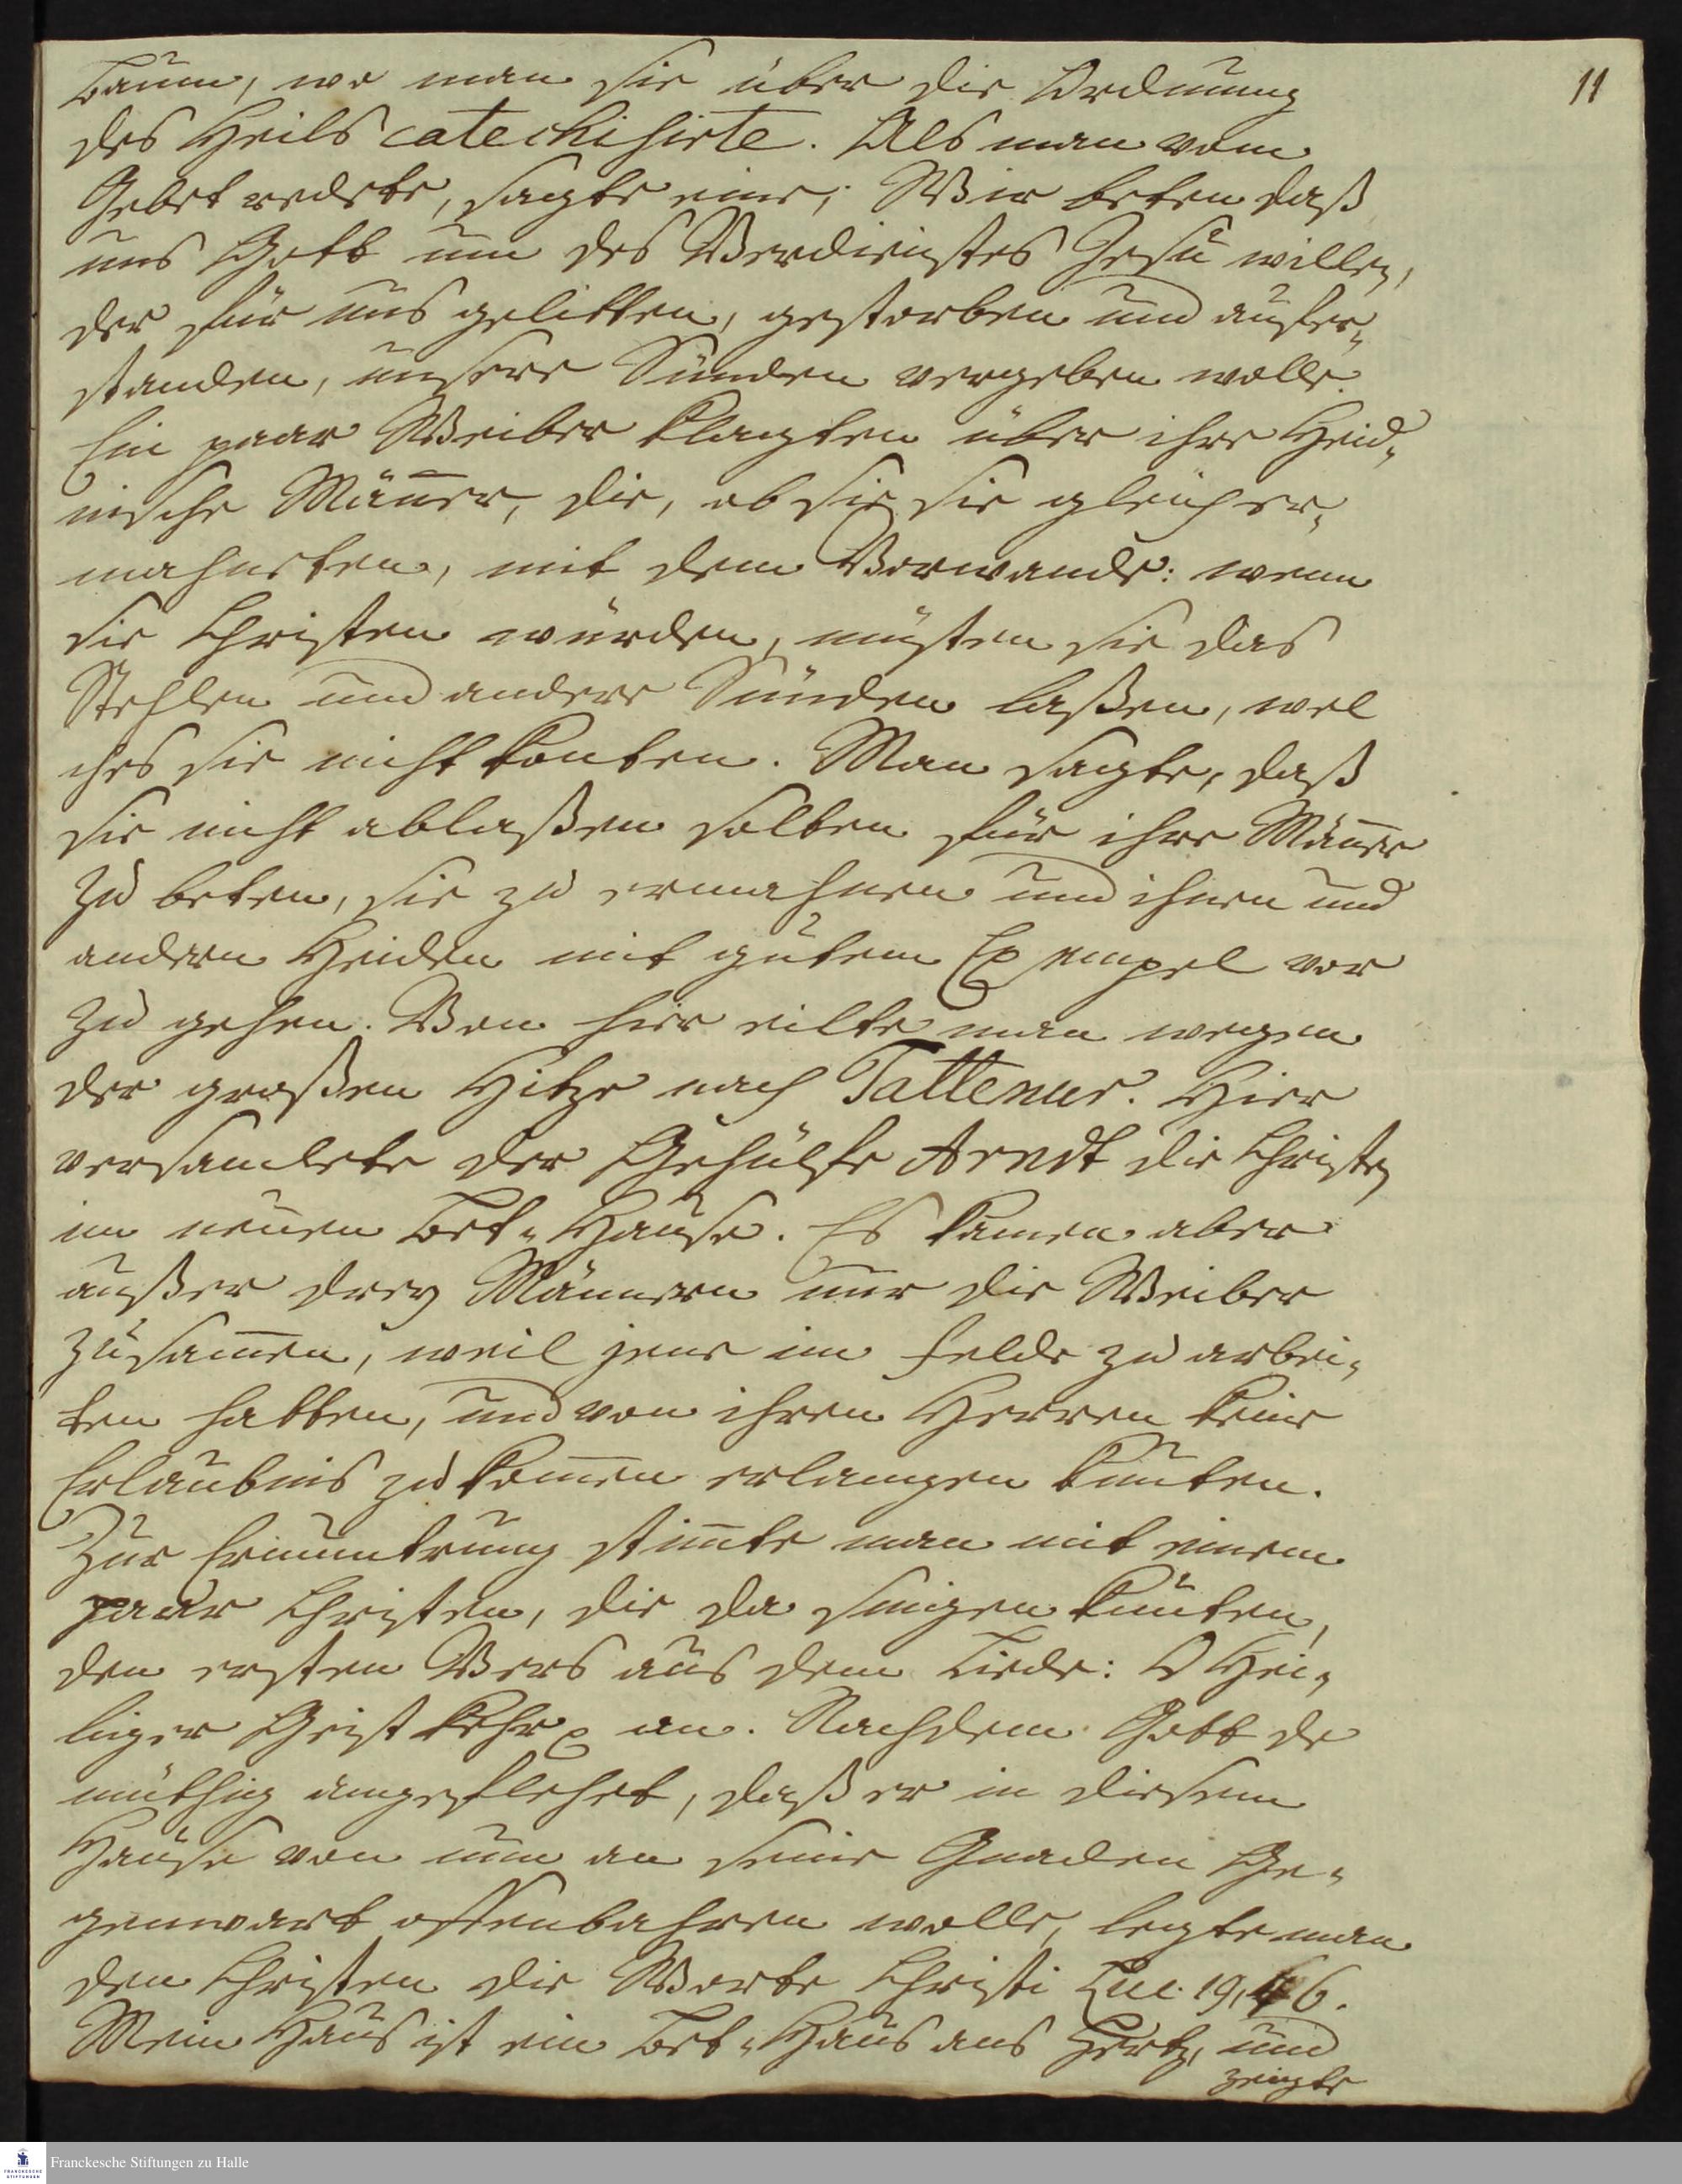 11
Baum, wo man sie über die Ordnung
des Heils catechisirte. Als man vom
Gebet redete, sagte eine; Wir beten daß
uns Gott um des Verdienstes Jesu willen,
der für uns gelitten, gestorben und aufer„
standen, unsere Sünden vergeben wolle.
Ein paar Weiber klagten über ihre Heid„
nische Mañer, die, ob sie sie gleich er„
mahneten, mit dem Vorwande: wenn
sie Christen würden, müsten sie das
Stehlen und andere Sünden laßen, wel
ches sie nicht konten. Man sagte, daß
sie nicht ablaßen solten für ihre Mäñer
zu beten, sie zu ermahnen und ihnen und
andern Heiden mit gutem Exempel vor
zu gehen. Von hier eilte man wegen
der großen Hitze nach Tattenur. Hier
versamlete der Gehülfe Arndt die Christen
im neuen Bet„Hause. Es kamen aber
außer drey Männern nur die Weiber
zusam̄en, weil jene im Felde zu arbei„
ten hatten, und von ihren Herren keine
Erlaubnis zu kom̄en erlangen kunten.
Zur Ermuntrung stim̄te man mit einem
paar Christen, die da singen kunten,
den ersten Vers aus dem Liede: O Hei„
liger Geist kehr p an. Nachdem Gott de
müthig angeflehet, daß er in diesem
Hause von nun an seine Gnaden Ge„
genwart offenbahren wolle, legte man
den Christen die Worte Christi Luc. 19,46.
Mein Haus ist ein Bet„Haus ans Hertz, und
zeigte
Franckesche Stiftungen zu Halle
FRANCKESCHE
STIFTUNGEN